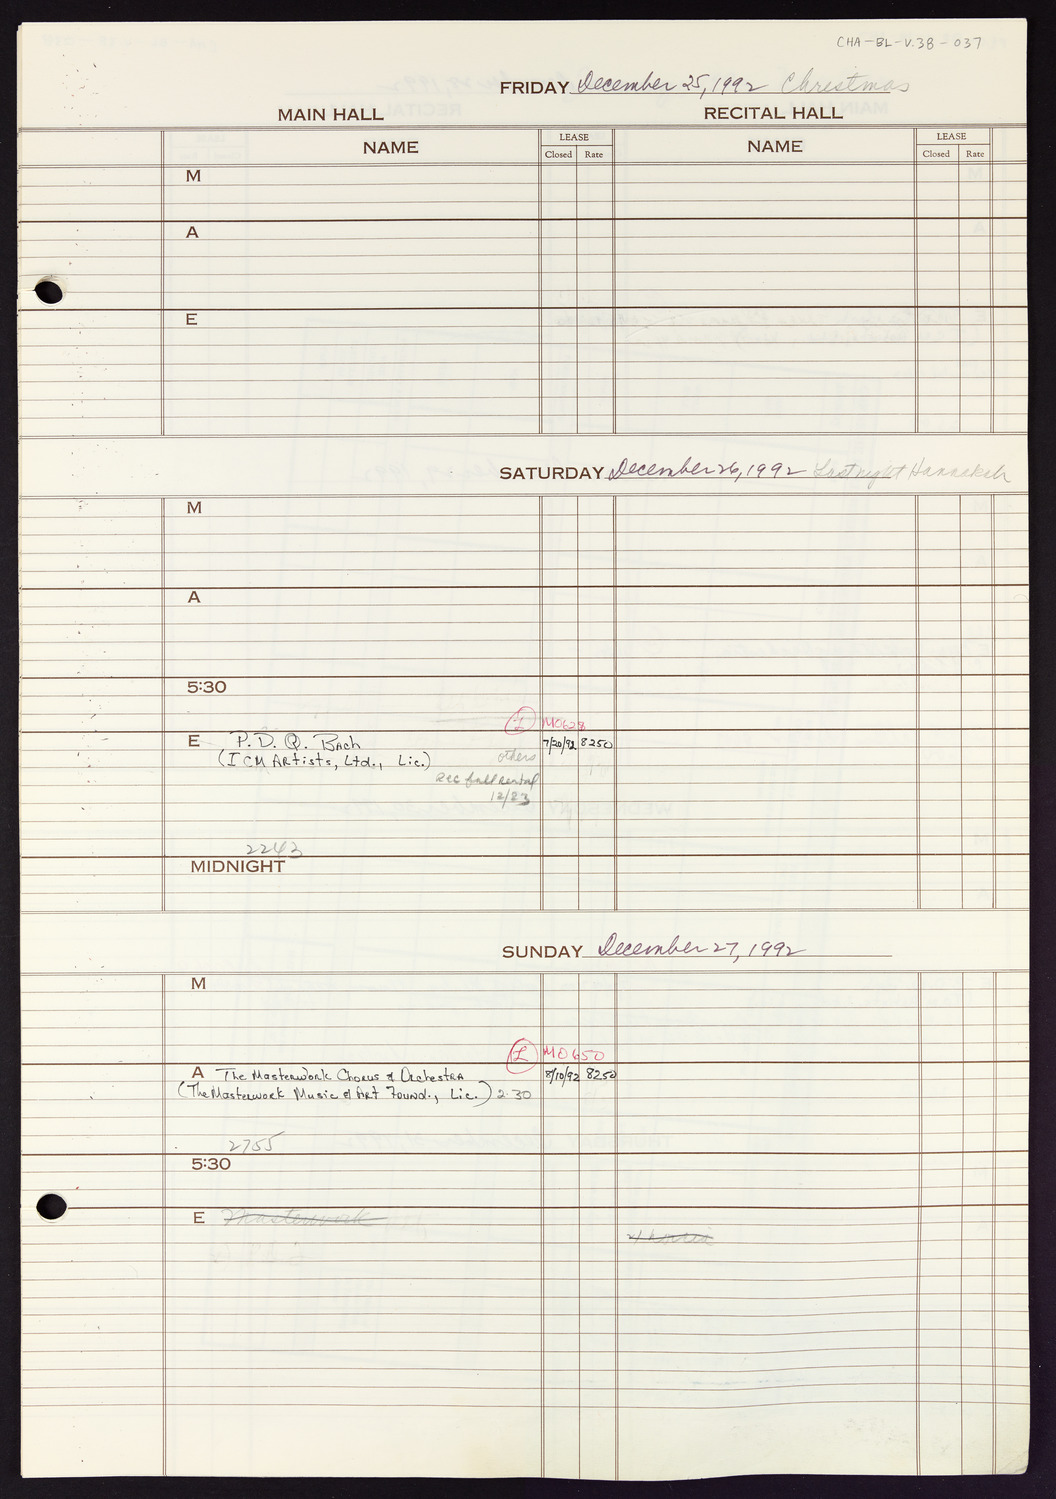 CHA-BL-V.38-037
FRIDAY December 25, 1992 Christmas
MAIN HALL RECITAL HALL
NAME LEASE Closed Rate NAME LEASE Closed Rate
M
A
E
SATURDAY December 26, 1992 Last night Hannekah
M
A
5:30
L M0628
E P.D.Q. Bach 7/20/92 8250
(ICM Artists, Ltd., Lic.) others
rec full rental
12/23
2243
MIDNIGHT
SUNDAY December 27, 1992
M
L M0650
A The Masterwork Chorus & Orchestra 8/10/92 8250
(The Masterwork Music & Art Found., Lic.) 2:30
2755
5:30
E Masterwork